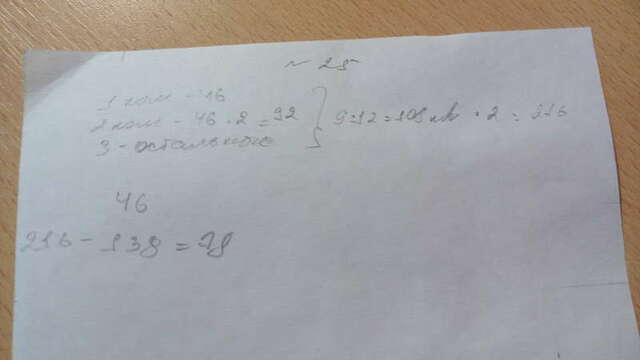 ~ 25
1 ком - 46
2 ком - 46 · 2 = 92
3 - остальное
9 · 12 = 108 кв · 2 = 216
46
216 - 138 = 78